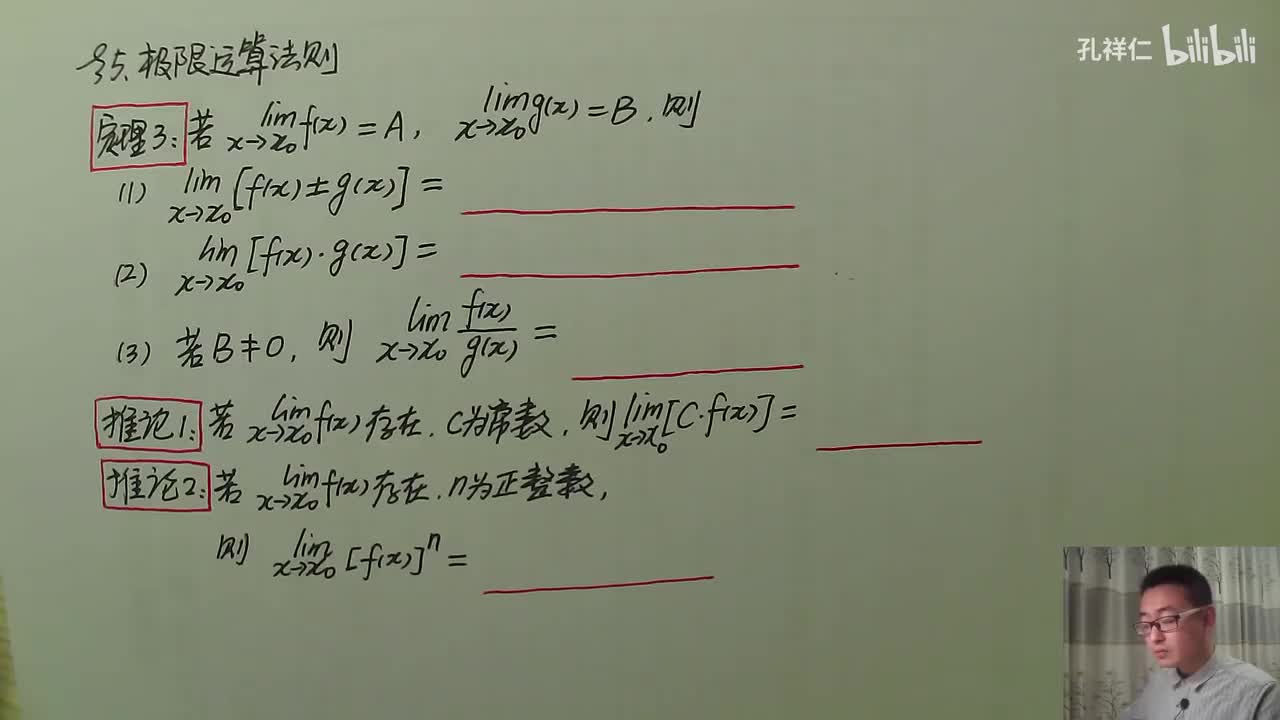 孔祥仁 bilibili
§5、极限运算法则
定理3: 若 lim x→x₀ f(x) = A, lim x→x₀ g(x) = B, 则
(1) lim x→x₀ [f(x) ± g(x)] =
(2) lim x→x₀ [f(x)·g(x)] =
(3) 若 B ≠ 0, 则 lim x→x₀ f(x)/g(x) =
推论1: 若 lim x→x₀ f(x) 存在, C为常数, 则 lim x→x₀ [C·f(x)] =
推论2: 若 lim x→x₀ f(x) 存在, n为正整数,
则 lim x→x₀ [f(x)]ⁿ =